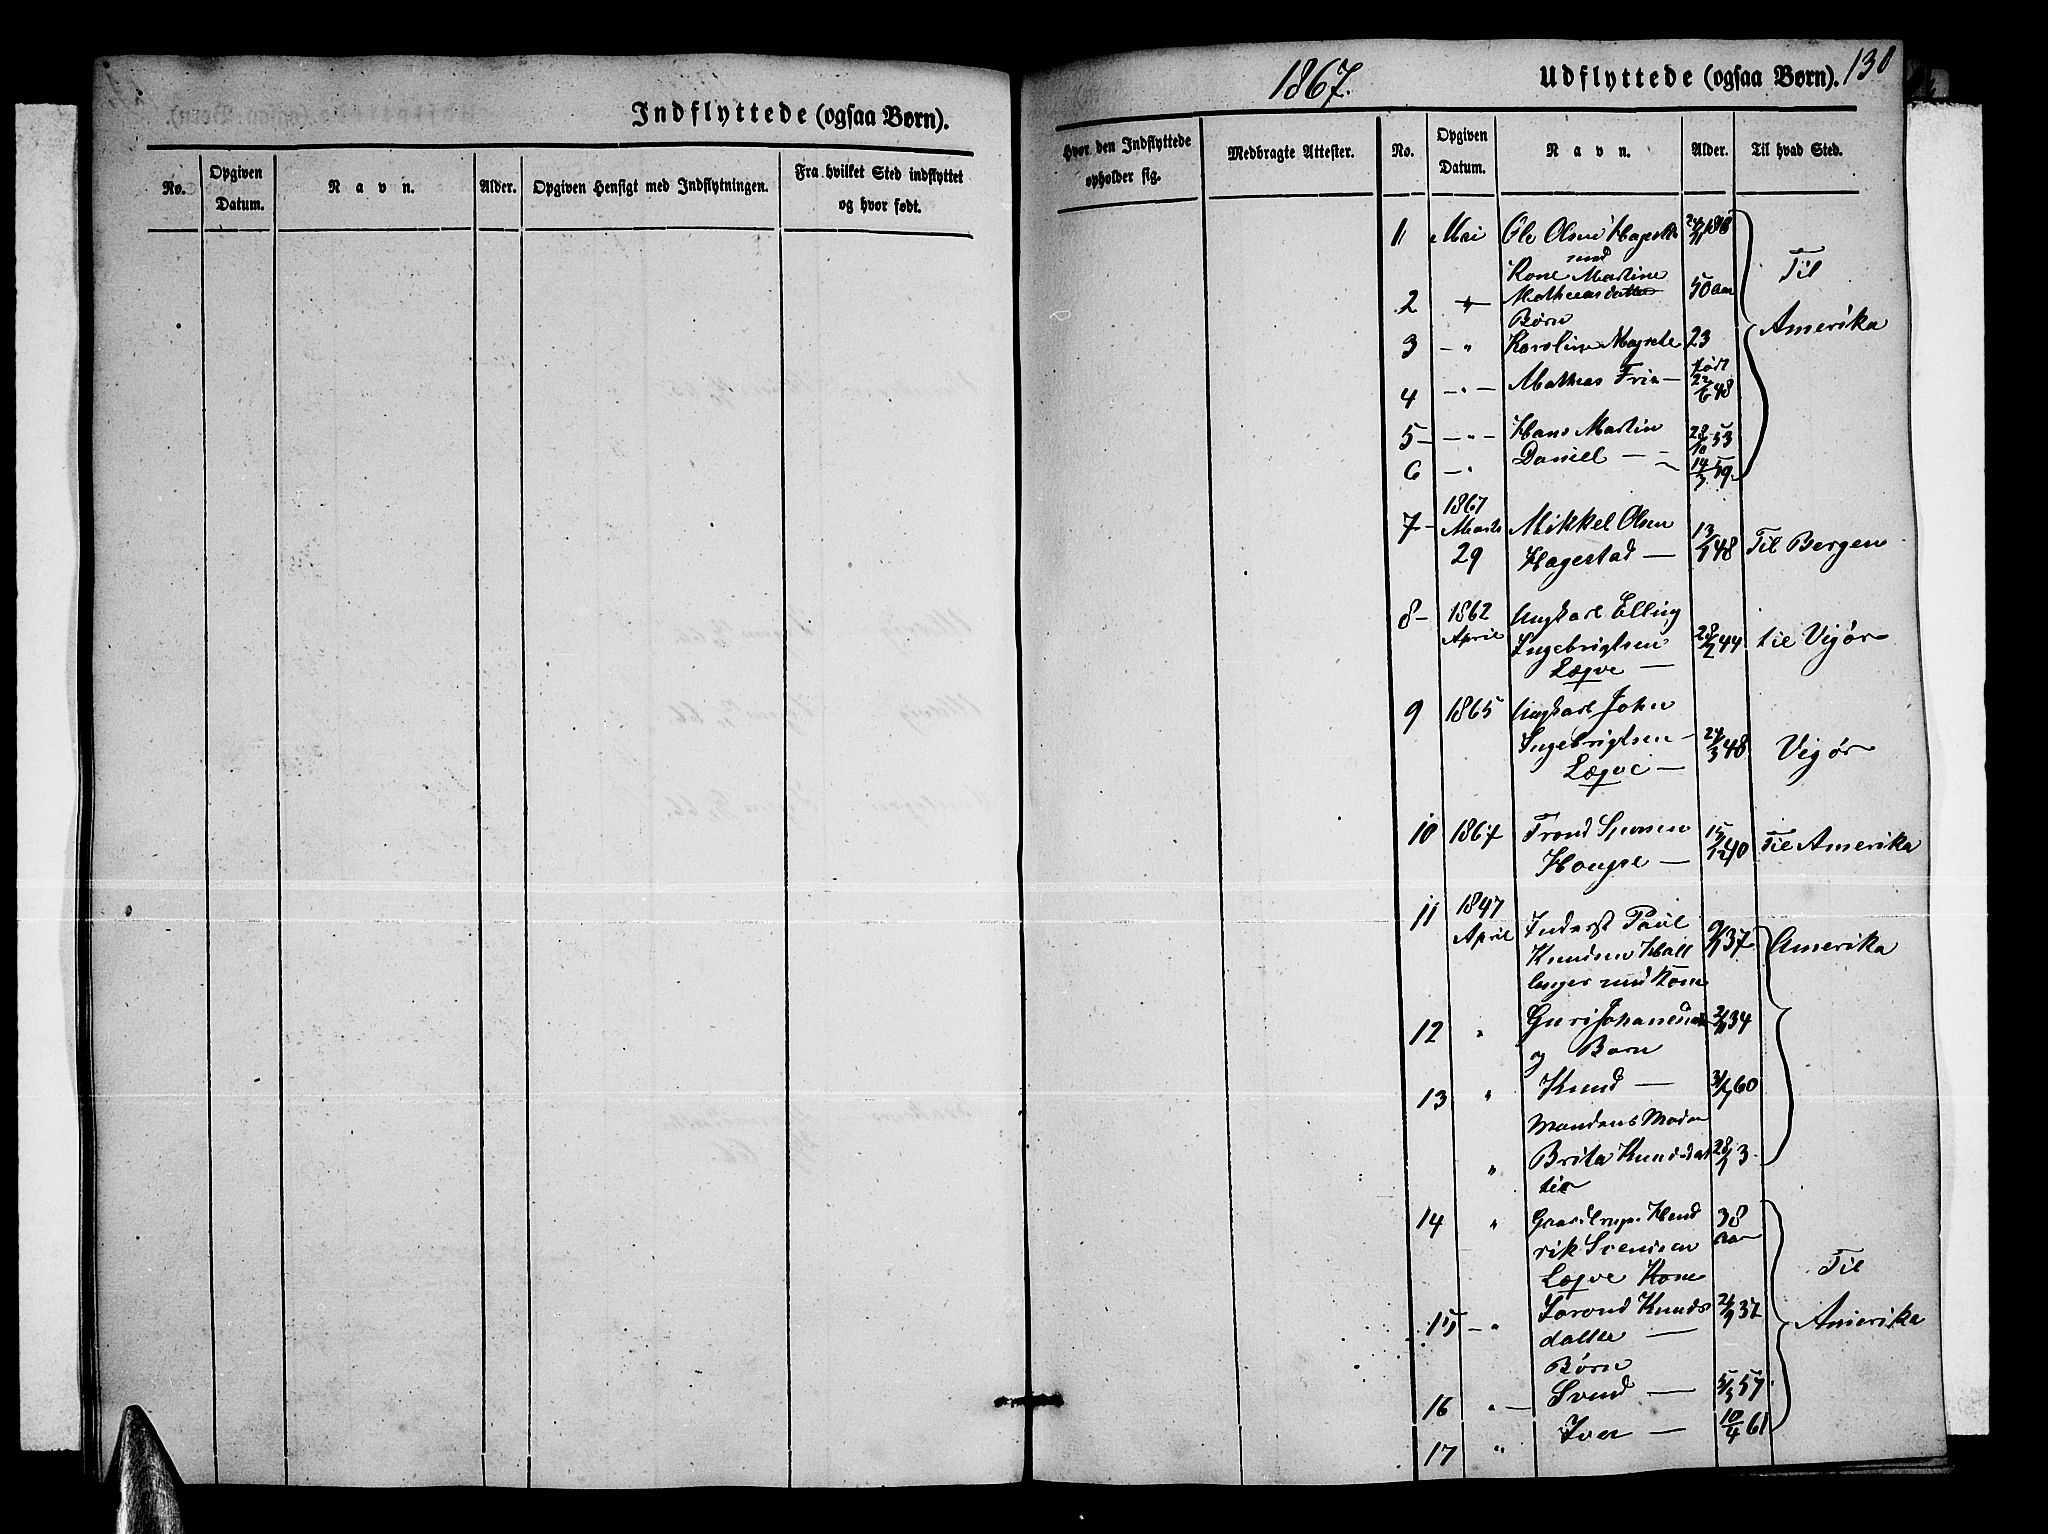 Indflyttede (ogsaa Børn).
No.
Opgiven Datum.
Navn.
Alder.
Opgiven Hensigt med Indflytningen.
Fra hvilket Sted indflyttet og hvor født.
1867.
Udflyttede (ogsaa Børn).
130
Hvor den Indflyttede opholder sig.
Medbragte Attester.
No.
Opgiven Datum.
Navn.
Alder.
Til hvad Sted.
1 Mai Ole Olsen
med
Kone Martine
2 Mathiasdatter 50 aar
Børn
3 - " Karoline Magrete 23
født
4 - " - Mathias 22/6 48
5 - - " - Hans Martin 28/10 53
6 - " Daniel - 14/3 59
Til
Amerika
1867
7 - Marts Mikkel Olsen 13/1 48 Til Bergen
29 Hagestad -
8 - 1862 Ungkarl Elling
April Ingebrigtsen 28/2 44 til Vigør
Læqve -
9 1865 Ungkarl John
Ingebrigtsen - 24/3 48 Vigør
Læqve -
10 1867 Trond 15/12 40 Til Amerika
11 1847 Inderst Paul 9/1 37 Amerika
April Knudsen Hall
langer med Kone
12 " Guri 34
og Barn
13 " Knud - 60
Mandens Moder
" Brita Knudsdat
ter
14 " Hend 38
rik Svendsen aar
Læqve Kone
15 - " Knuds 37
datter -
Børn
16 " - Svend - 5/3 57
17 " Iver - 10/4 61
Til
Amerika